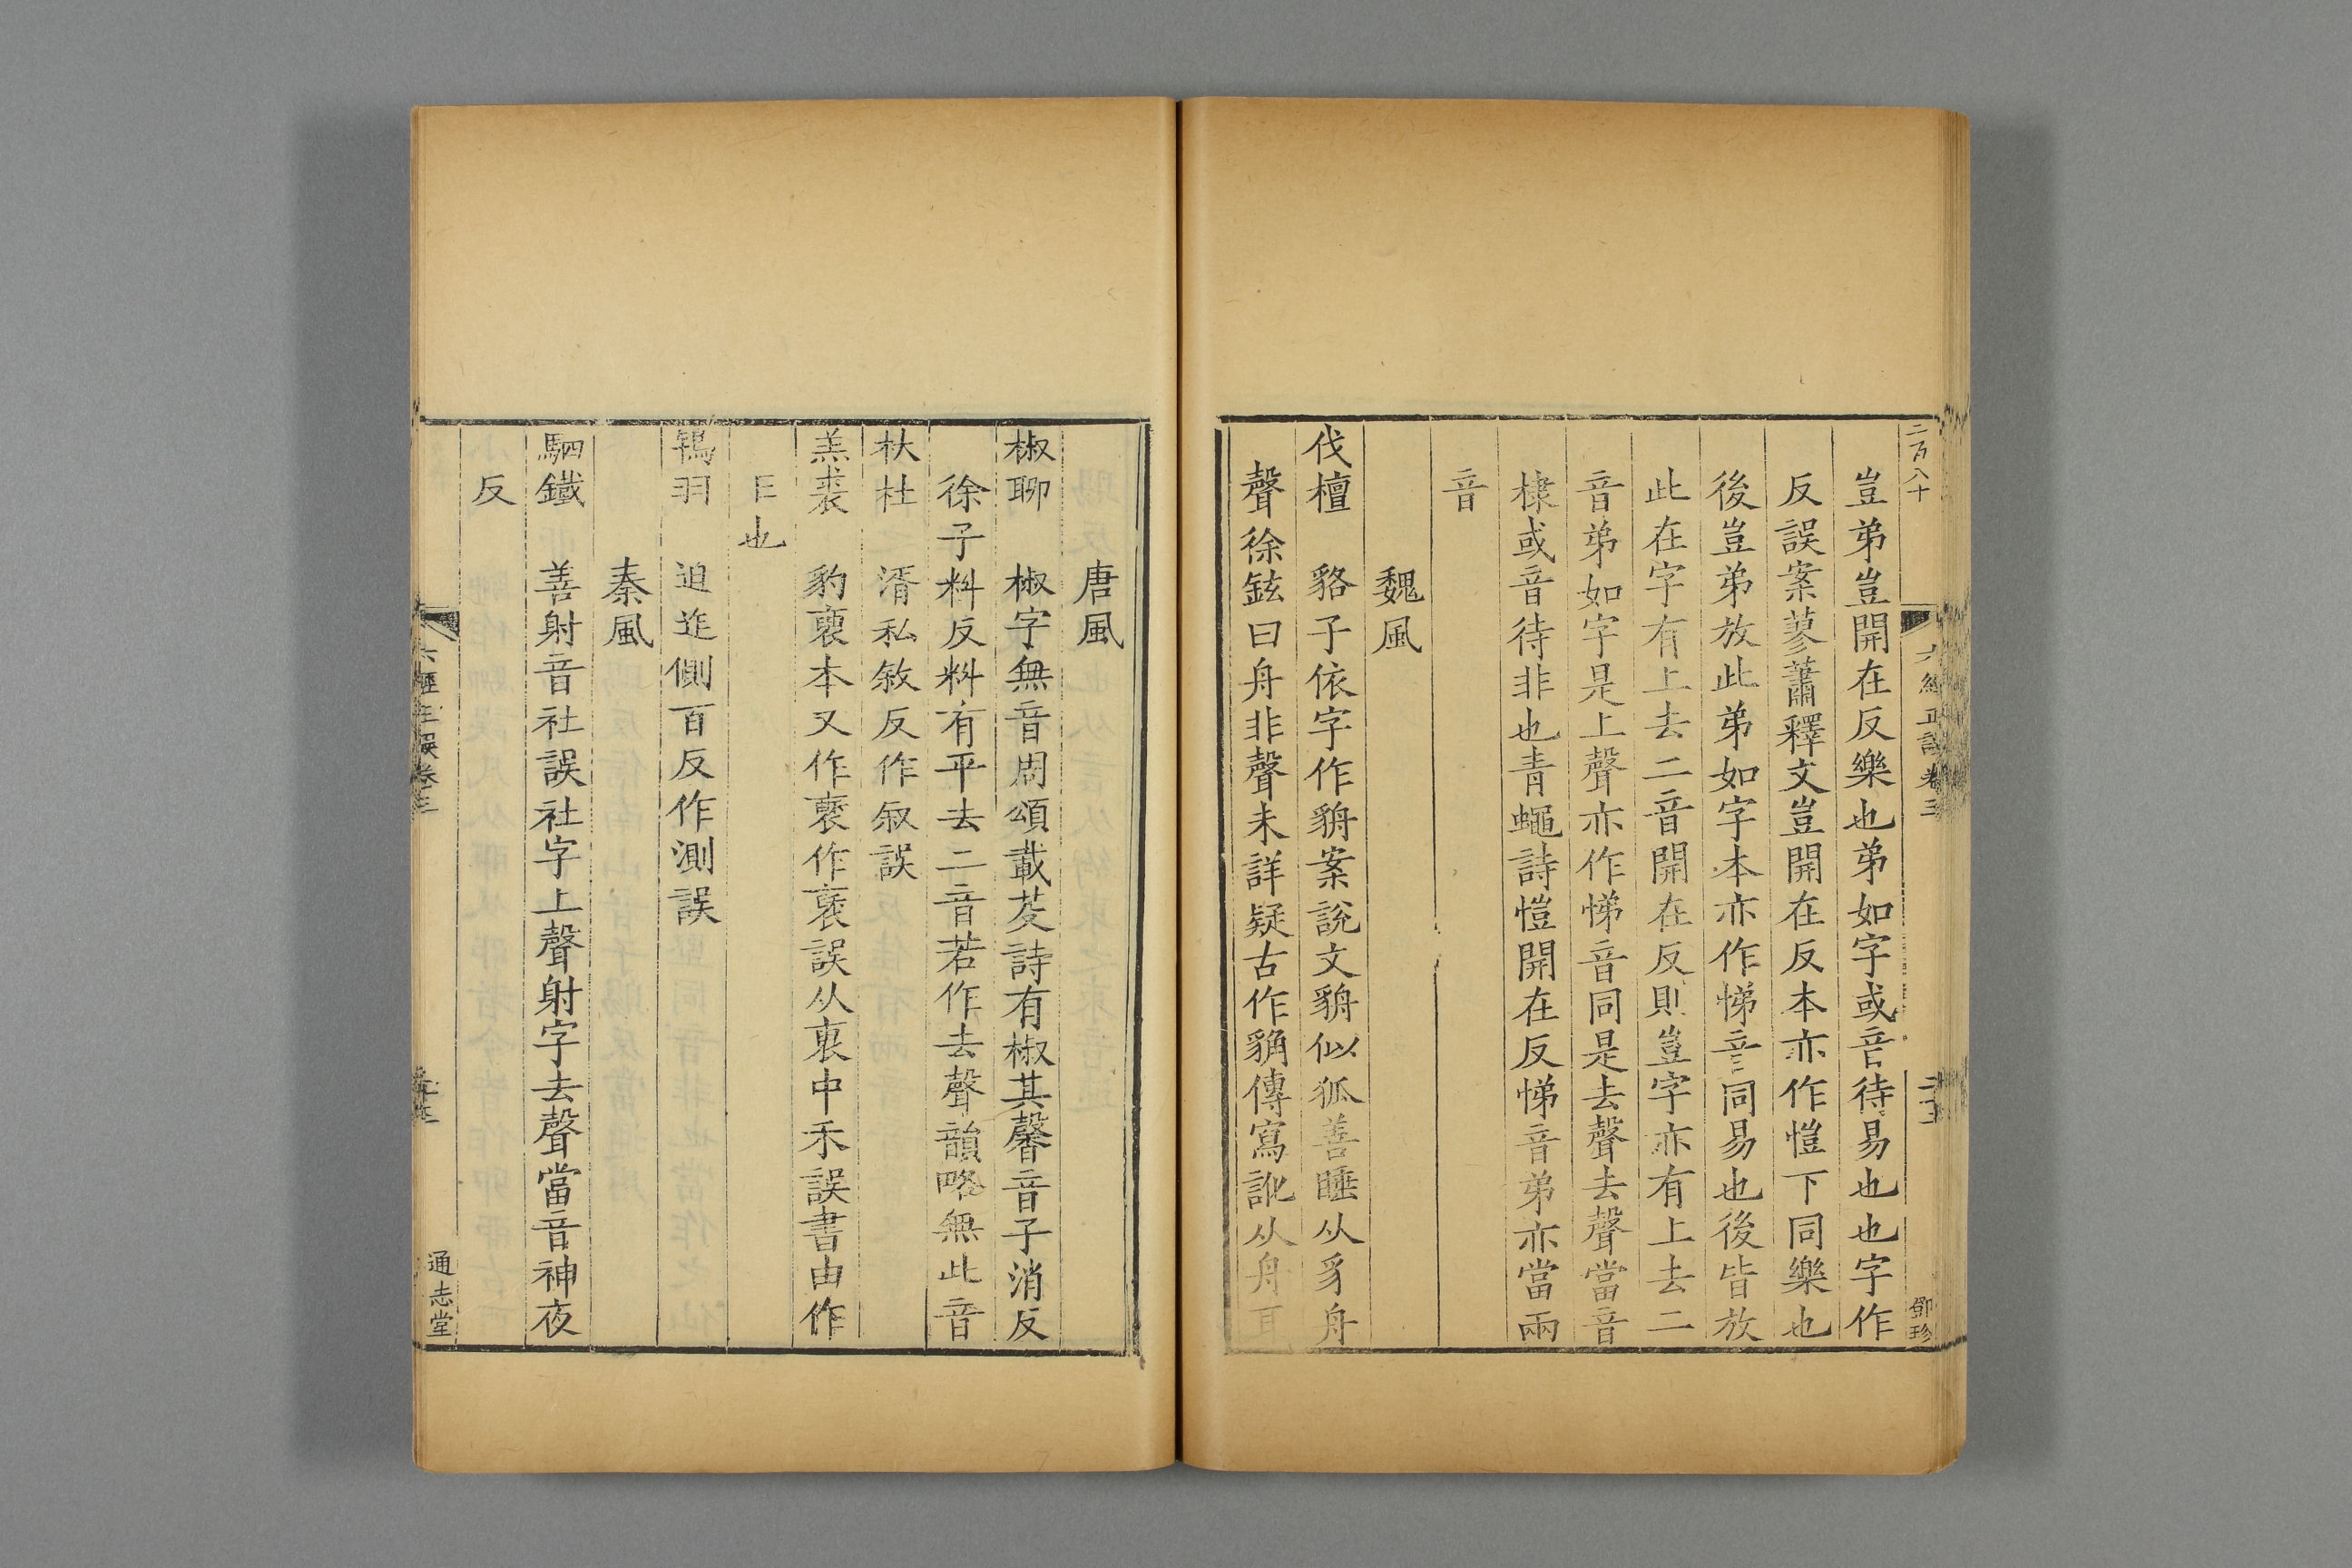 二百八十
六經正誤卷三
鄧珍
豈弟豈開在反樂也弟如字或音待易也也字作
反誤案蓼蕭釋文豈開在反本亦作愷下同樂也
後豈弟放此弟如字本亦作悌音同易也後皆放
此在字有上去二音開在反則豈字亦有上去二
音弟如字是上聲亦作悌音同是去聲去聲當音
棣或音待非也青蠅詩愷開在反悌音弟亦當兩
音
魏風
伐檀 貉子依字作貈案說文貈似狐善睡从豸舟
聲徐鉉曰舟非聲未詳疑古作貈傳寫訛从舟耳
唐風
椒聊 椒字無音周頌載芟詩有椒其馨音子消反
徐子料反料有平去二音若作去聲韻略無此音
杕杜 湑私敘反作叙誤
羔裘 豹褎本又作褏作裦誤从裏中禾誤書由作
日也
鴇羽 迫迮側百反作測誤
秦風
駟鐵 善射音社誤社字上聲射字去聲當音神夜
反
六經正誤卷三
通志堂